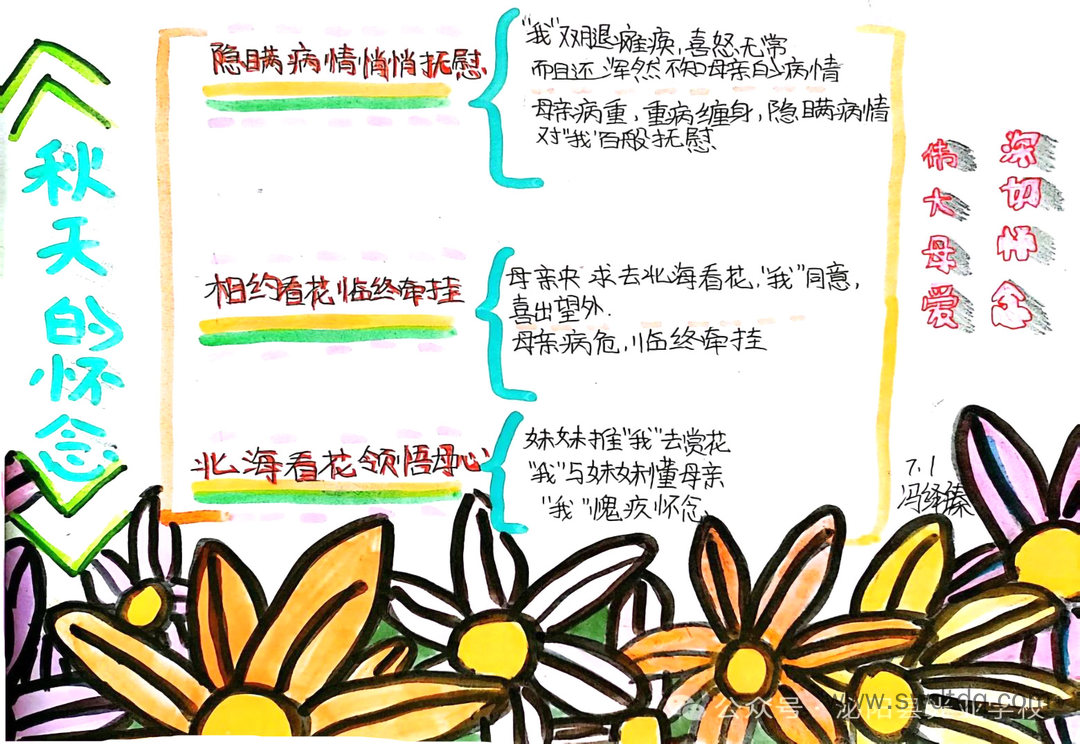 秋天的怀念
隐瞒病情悄悄抚慰
"我"双腿瘫痪,喜怒无常
而且还浑然不知母亲的病情
母亲病重,重病缠身,隐瞒病情
对"我"百般抚慰
相约看花临终牵挂
母亲央求去北海看花,"我"同意,
喜出望外.
母亲病危,临终牵挂
北海看花领悟母心
妹妹推"我"去赏花
"我"与妹妹懂母亲
"我"愧疚怀念
深切怀念
伟大母爱
7.1
冯译臻
公众号·泌阳县
学校